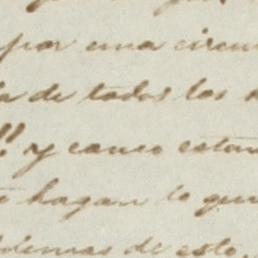 por una circun
de todos los
y como estan
hagan lo que
demas de esto